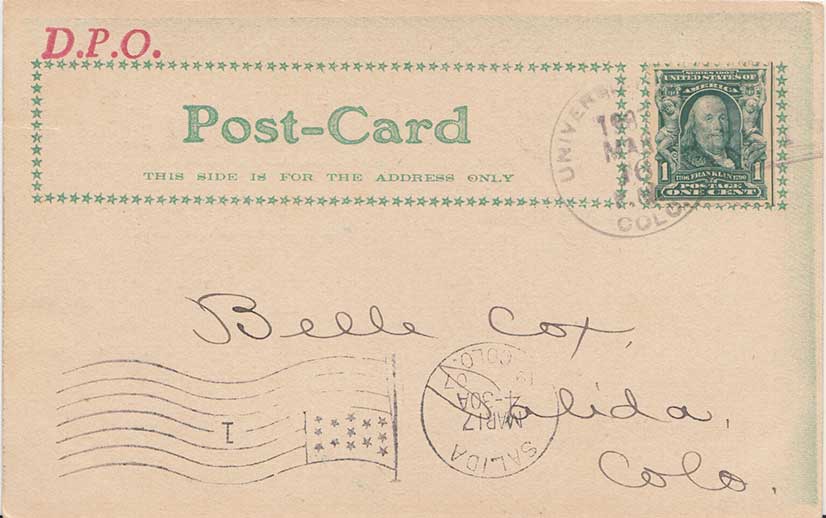 D.P.O.
Post-Card
THIS SIDE IS FOR THE ADDRESS ONLY
SERIES 1902
UNITED STATES OF
AMERICA
1 1
1706 FRANKLIN 1790
POSTAGE
ONE CENT
COLO.
Belle Cox,
Salida,
Colo.
1
SALIDA
COLO.
MAR 17
2-30A
07